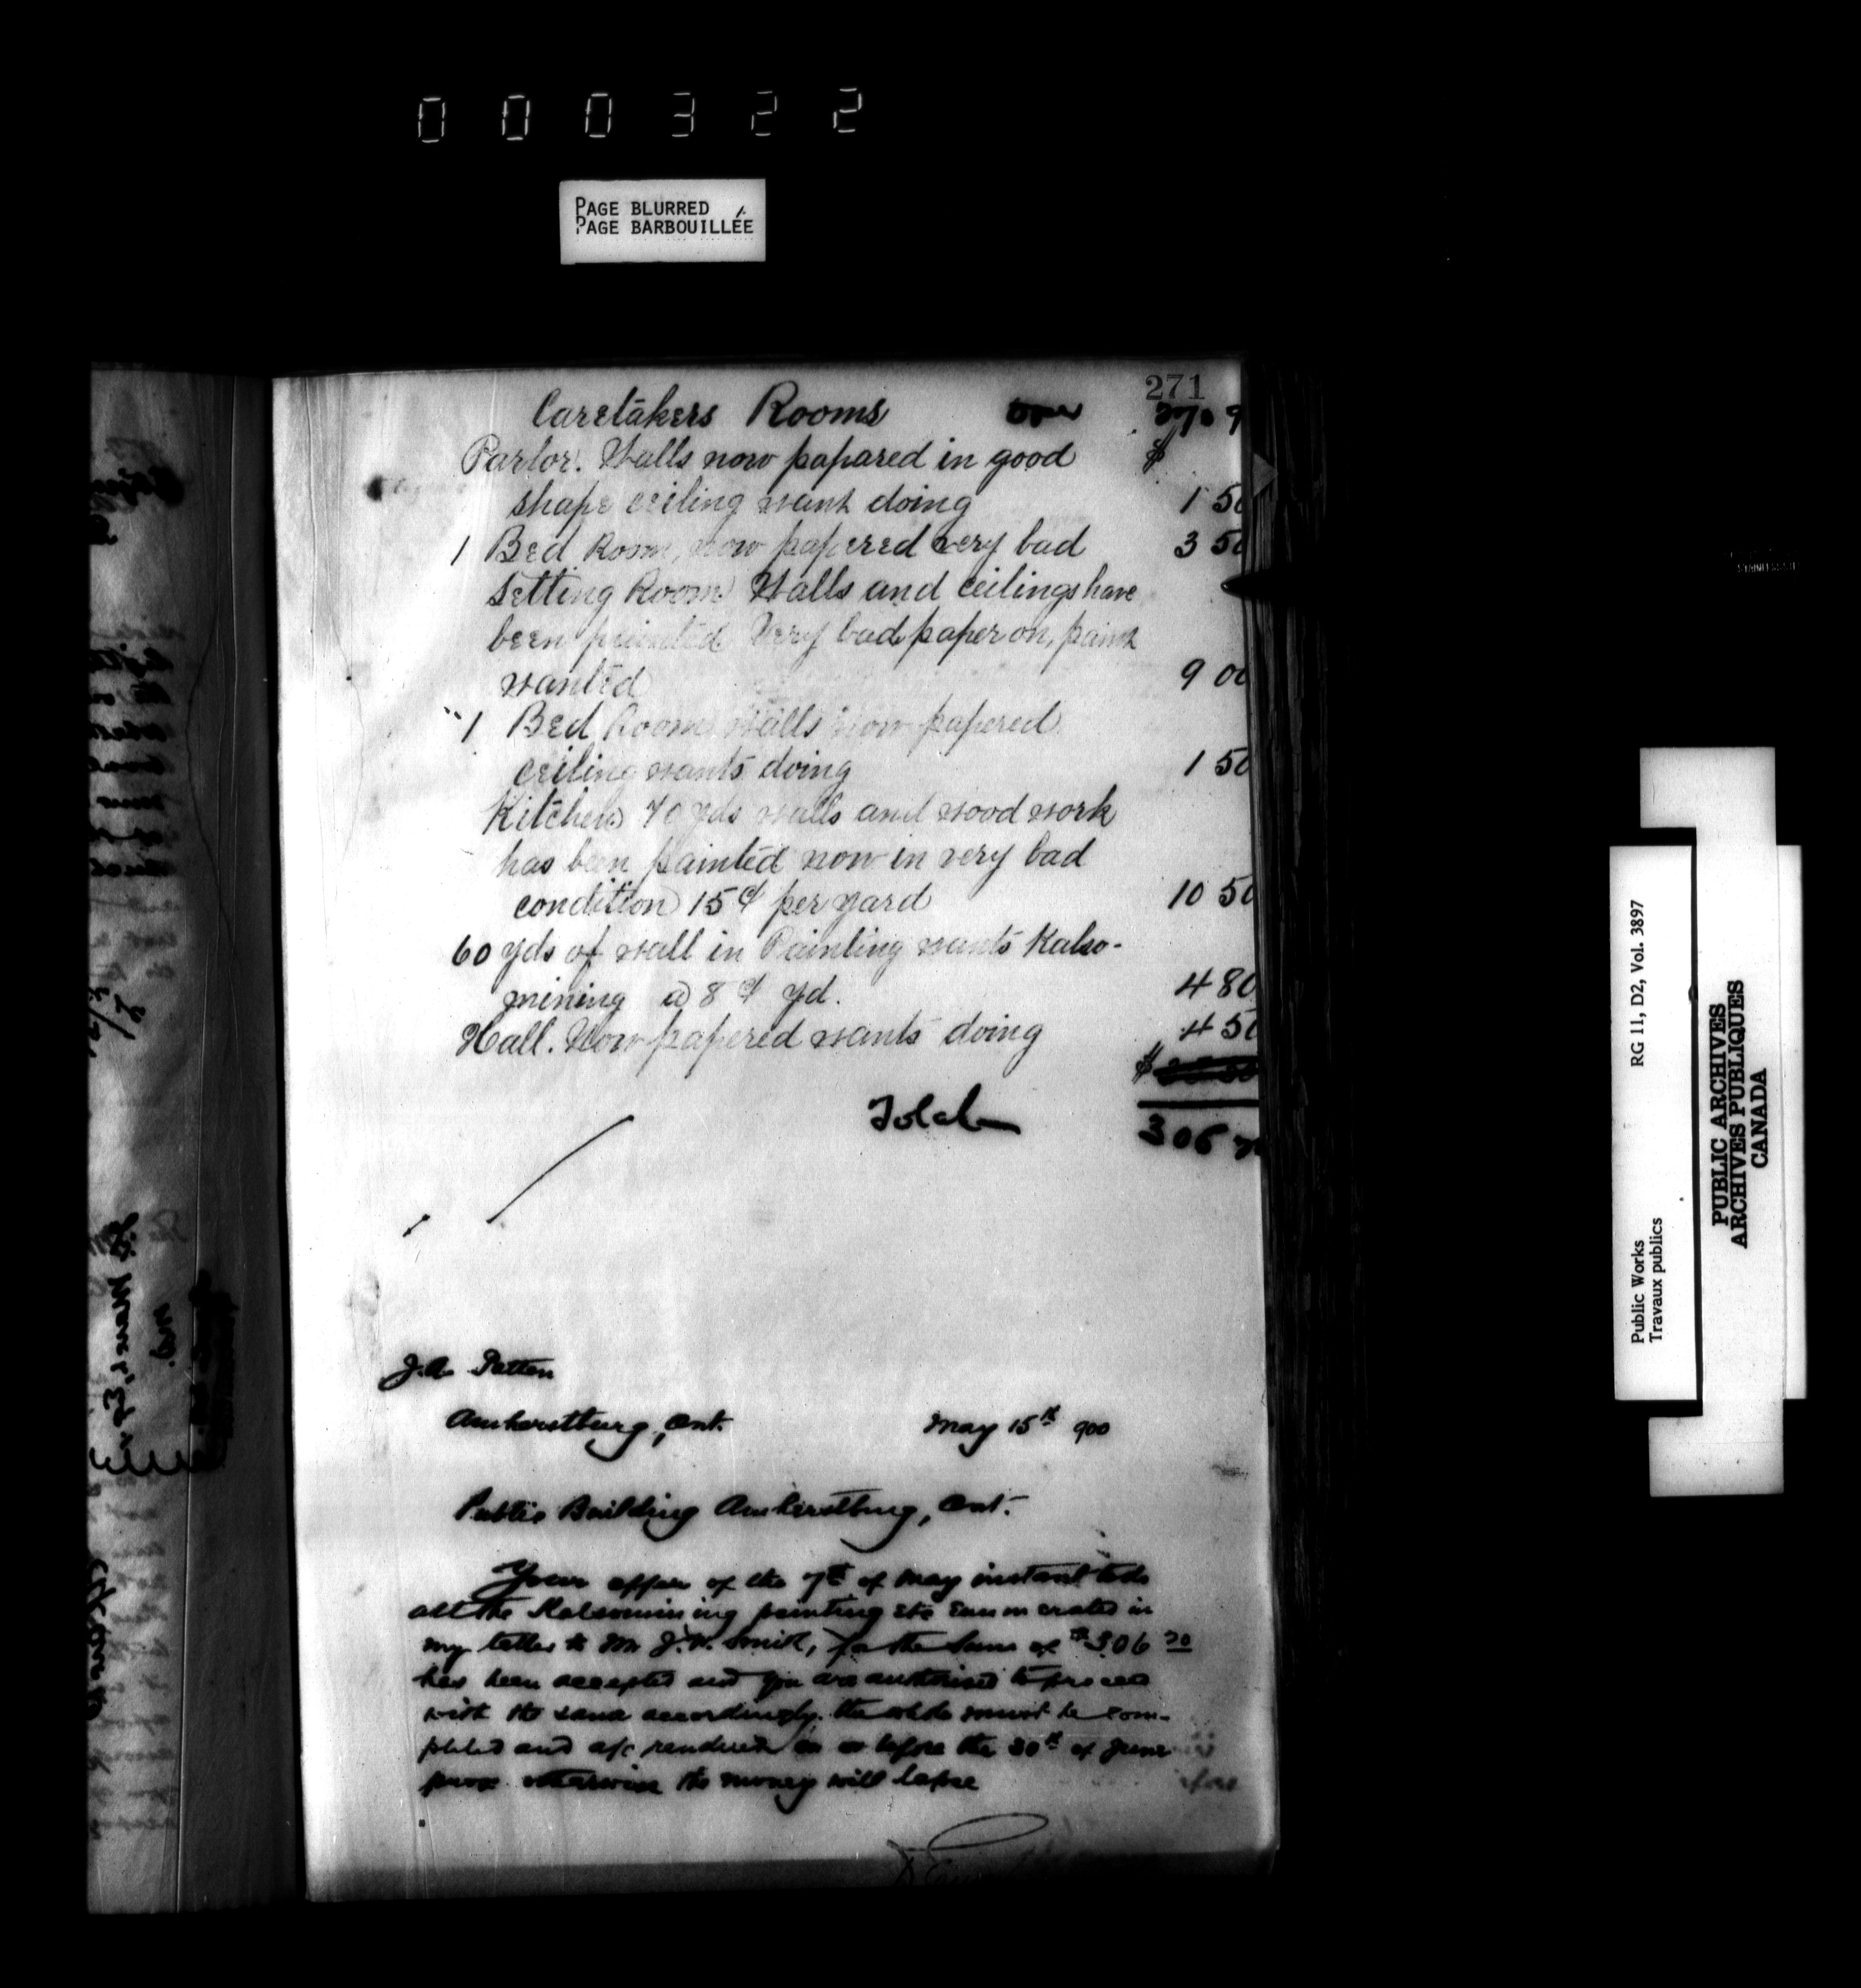 000322
PAGE BLURRED
PAGE BARBOUILLÉE
271
Caretakers Rooms
Parlor. Walls now papared in good $
shape ceiling want doing 1 50
1 Bed Room, now papered very bad 3 50
Setting Room Walls and ceilings have
been painted Very bad paper on, paint
wanted 9 00
1 Bed Room walls now papered
ceiling wants doing 1 50
Kitchen 70 yds walls and wood work
has been painted now in very bad
condition 15¢ per yard 10 50
60 yds of wall in Painting wants Kalso-
mining @ 8¢ yd. 4 80
Hall. Now papered wants doing 4 50
$
Total 306 70
J.A. Patten
Amherstburg, Ont. May 15th 900
Public Building Amherstburg, Ont.
Your offer of the 7th of May instant to do
all the Kalsomining painting etc Enumerated in
my letter to Mr J.W. Smith, for the Sum of $306 70
has been accepted and you are authorised to proceed
with the same accordingly. the whole must be com-
pleted and a/c rendered on or before the 30th of June
prox. otherwise the money will lapse
Public Works
Travaux publics
RG 11, D2, Vol. 3897
PUBLIC ARCHIVES
ARCHIVES PUBLIQUES
CANADA